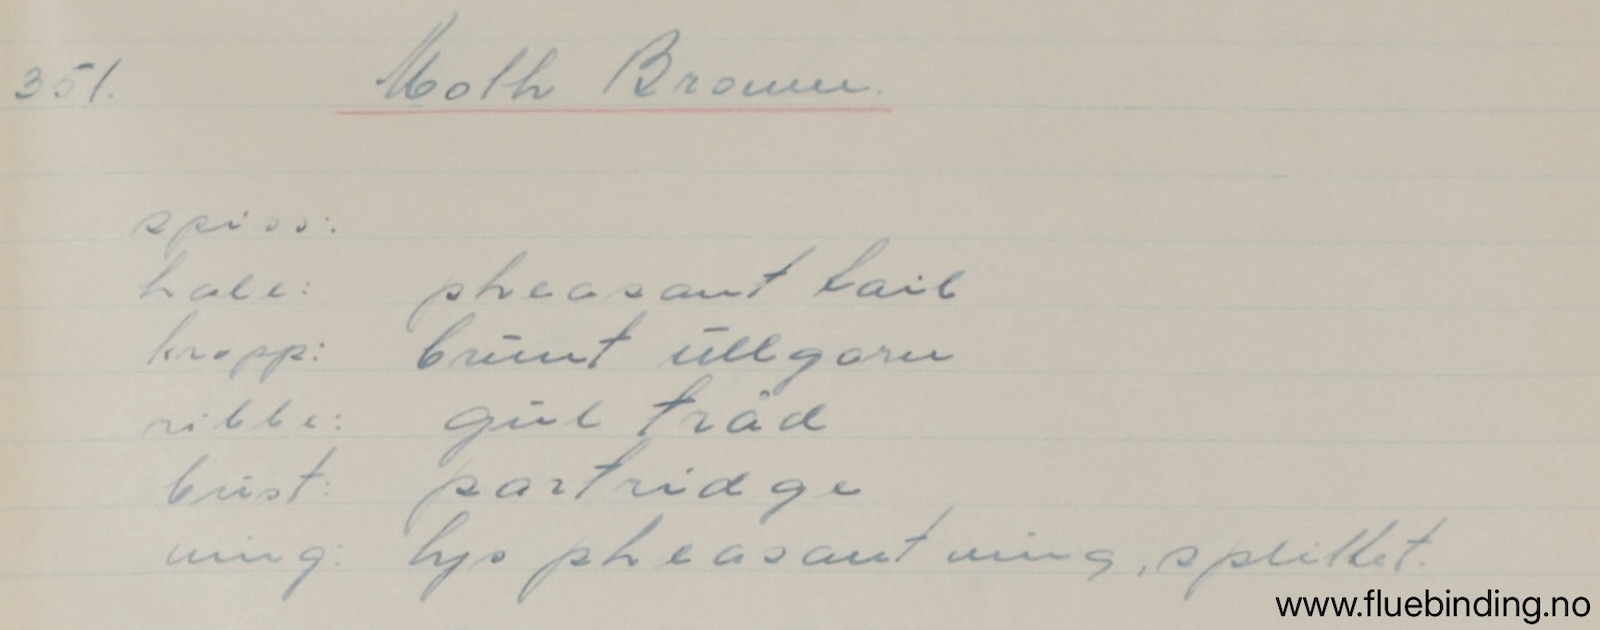 351. Moth Brown.
spiss:
hale: pheasant tail
kropp: brunt ullgarn
ribbe: gul tråd
bust: partridge
wing: lys pheasant wing, splittet.
www.fluebinding.no